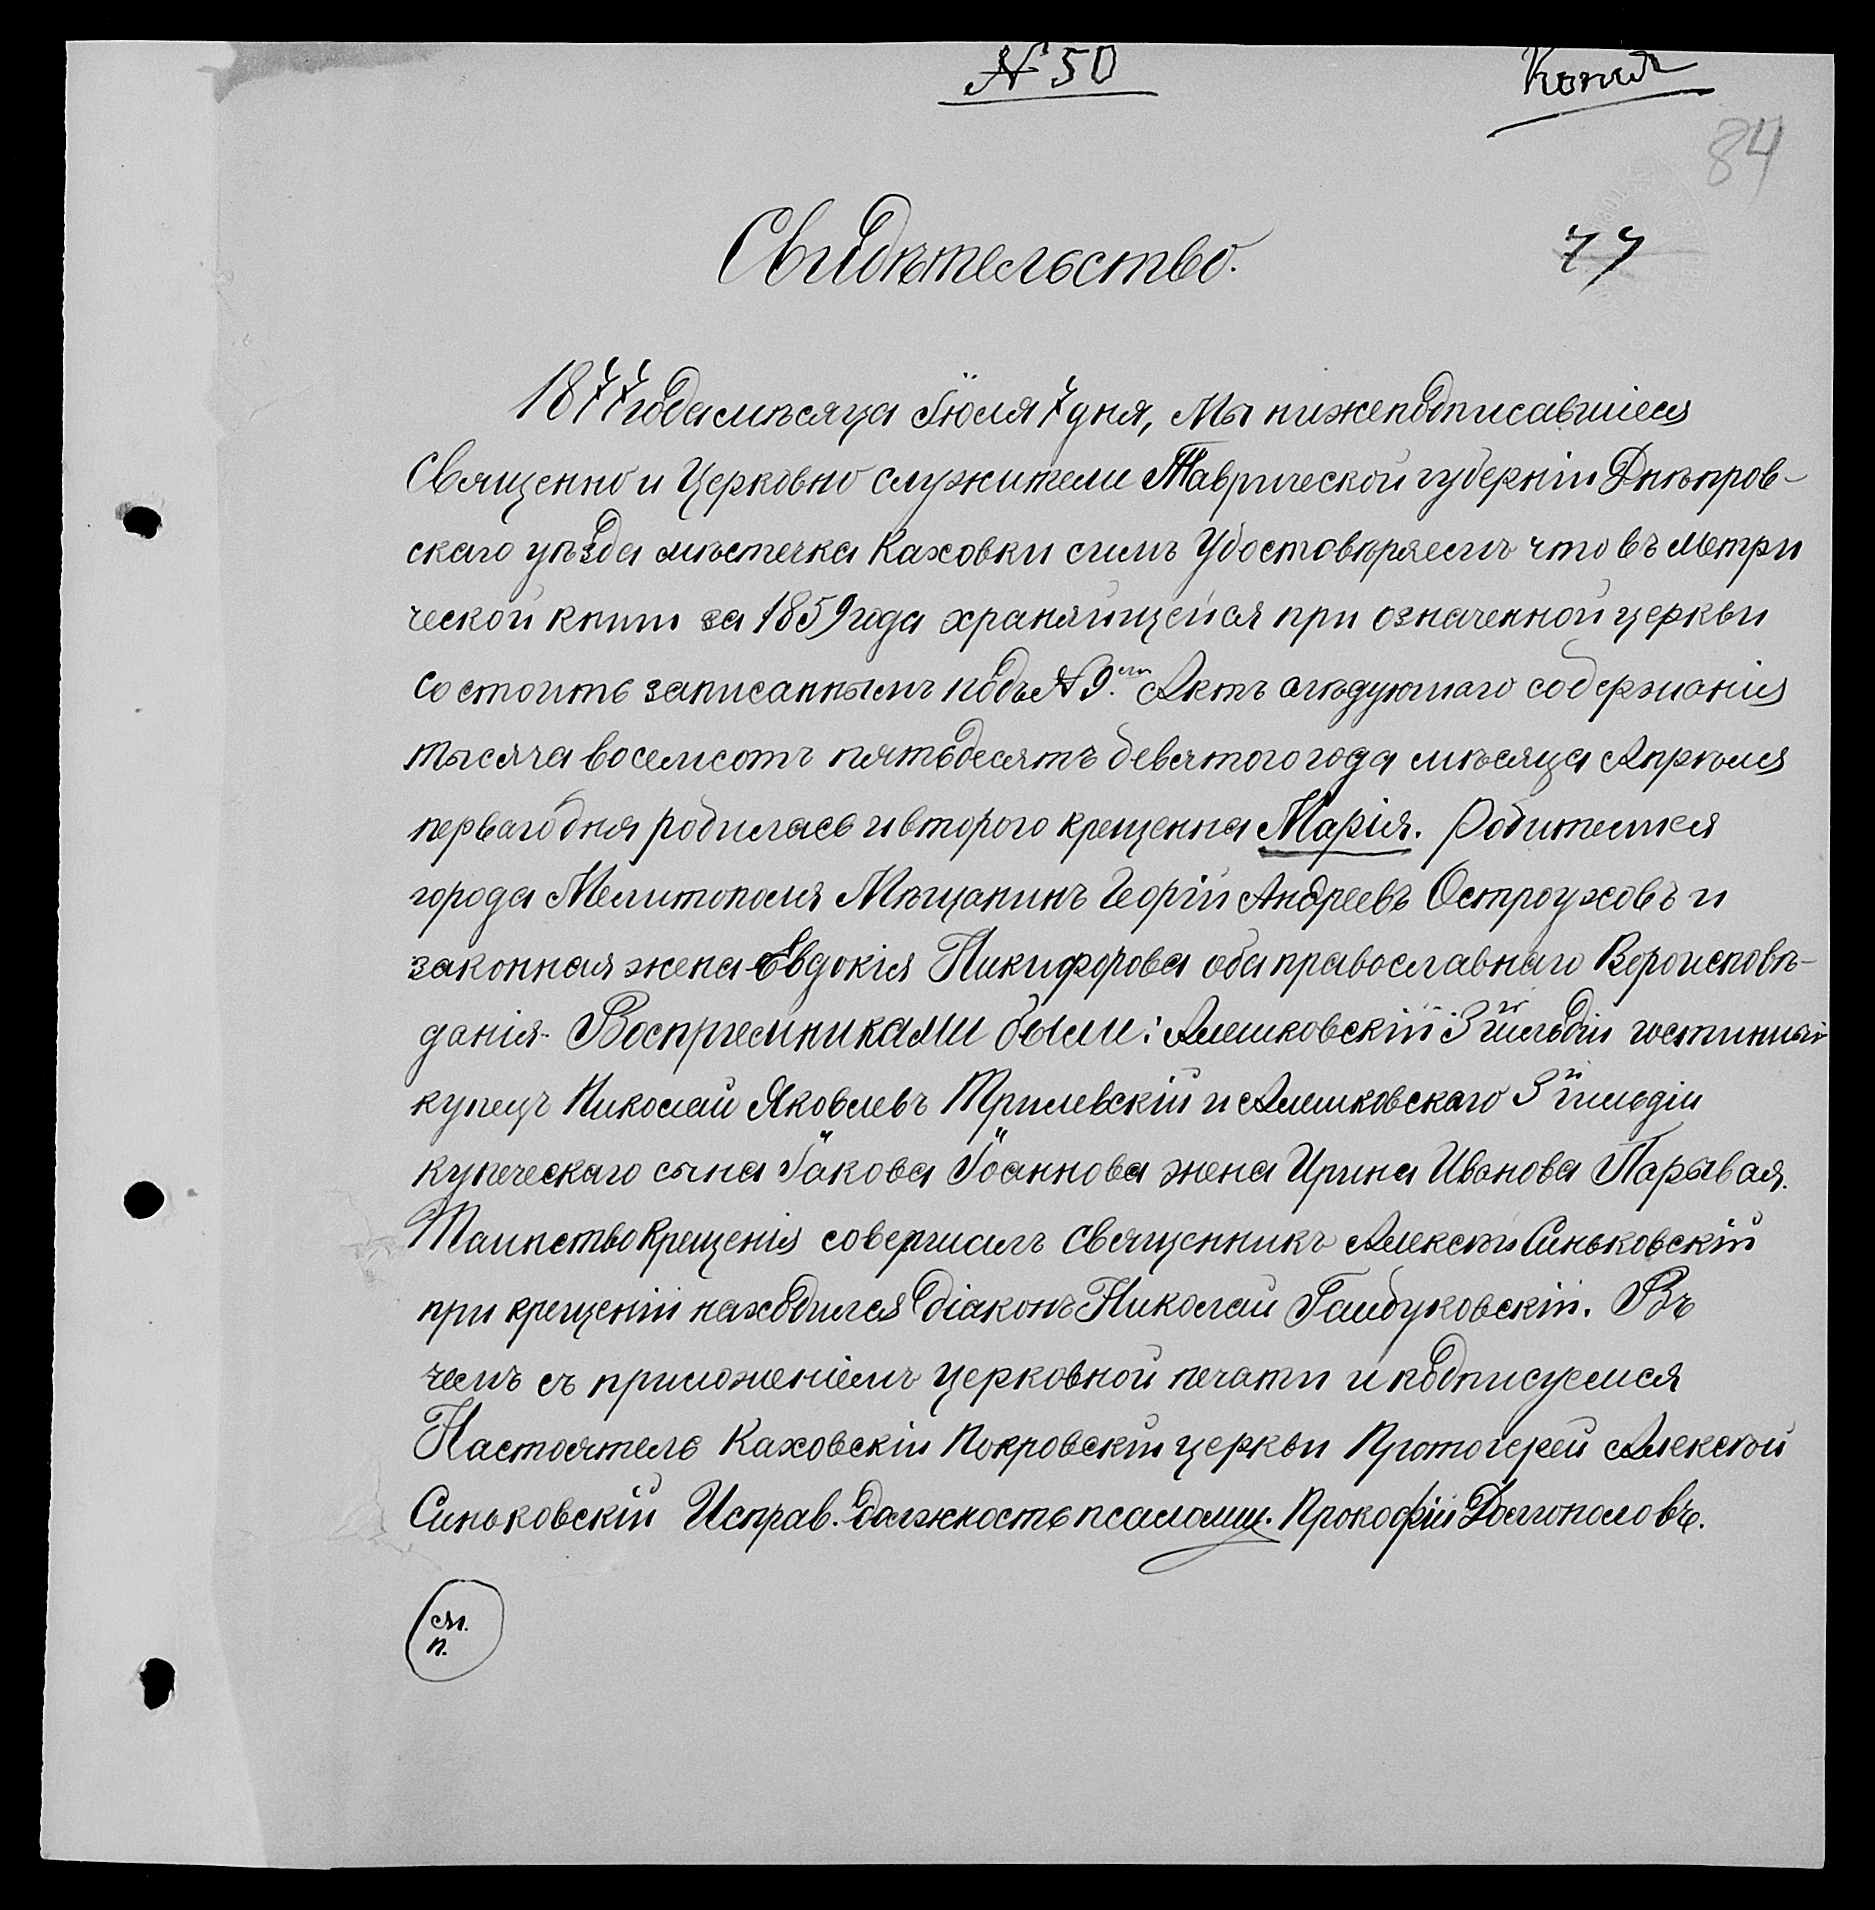 № 50
Копия
84
Свидѣтельство.
77
1877 года мѣсяца Іюля 7 дня, Мы нижеподписавшіеся
Священно и Церковно служители Таврической губерніи Днѣпров-
скаго уѣзда мѣстечка Каховки симъ Удостовѣряемъ что въ метри
ческой книги за 1859 года храняйщейся при означенной церкви
состоитъ записаннымъ подъ № 9. Актъ слѣдующаго содержанія
тысяча восемсотъ пятьдесятъ девятого года мѣсяца Апрѣля
перваго дня родилась и второго крещенна Марія. Родителіея
города Мелитополя Мѣщанинъ Георгій Андреевъ Остроуховъ и
законная жена Евдокія Никифорова оба православнаго Вероисповѣ-
данія. Воспріемниками были: Алешковскій 3й гильдіи гостинный
купецъ Николай Яковлевъ Трилевскій и Алешковскаго 3й гильдіи
купеческаго сына Іакова Іоаннова жена Ирина Иванова Паравая.
Таинство Крещенія совершилъ Священникъ Алексѣй Синьковскій
при крещеніи находился діаконъ Николай Гамбуковскій. Въ
чемъ съ приложеніемъ церковной печати и подписуемся
Настоятель Каховскій Покровскій церкви Протоіерей Алексѣй
Синьковскій Исправ. должность псаломщ. Прокофій Долгополовъ.
м.
п.